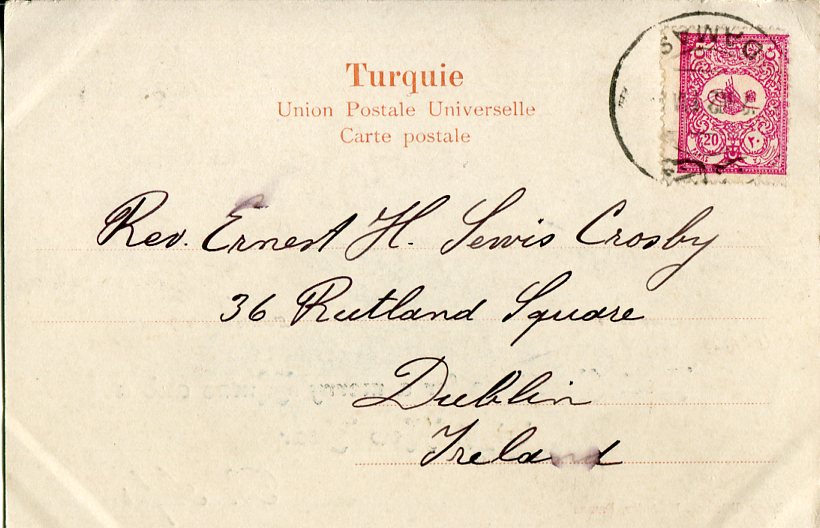 Turquie
Union Postale Universelle
Carte postale
DAMAS
20 ٢٠
Rev. Ernest H. Lewis Crosby
36 Rutland Square
Dublin
Ireland